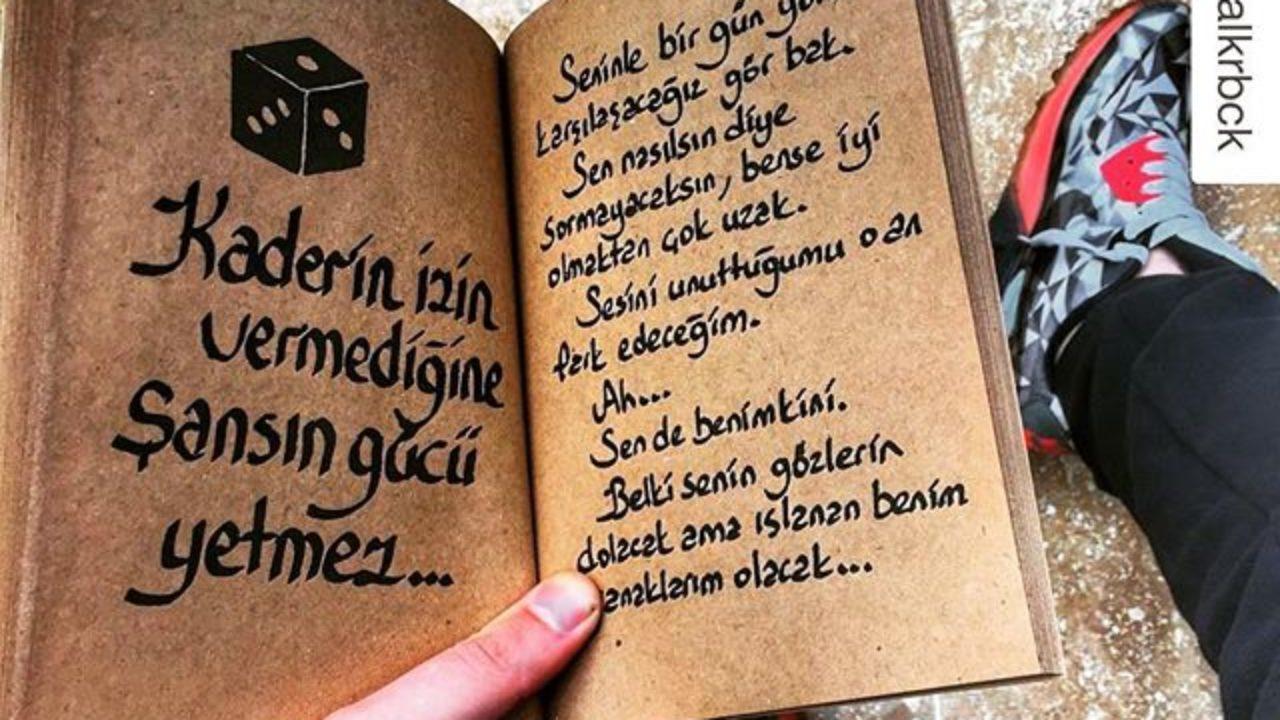 Kaderin izin
vermediğine
Şansın gücü
yetmez...
Seninle bir gün
karşılaşacağız gör bak.
Sen nasılsın diye
sormayacaksın, bense iyi
olmaktan çok uzak.
Sesini unuttuğumu o an
fark edeceğim.
Ah...
Sen de benimkini.
Belki senin gözlerin
dolacak ama ıslanan benim
yanaklarım olacak...
alkrbck